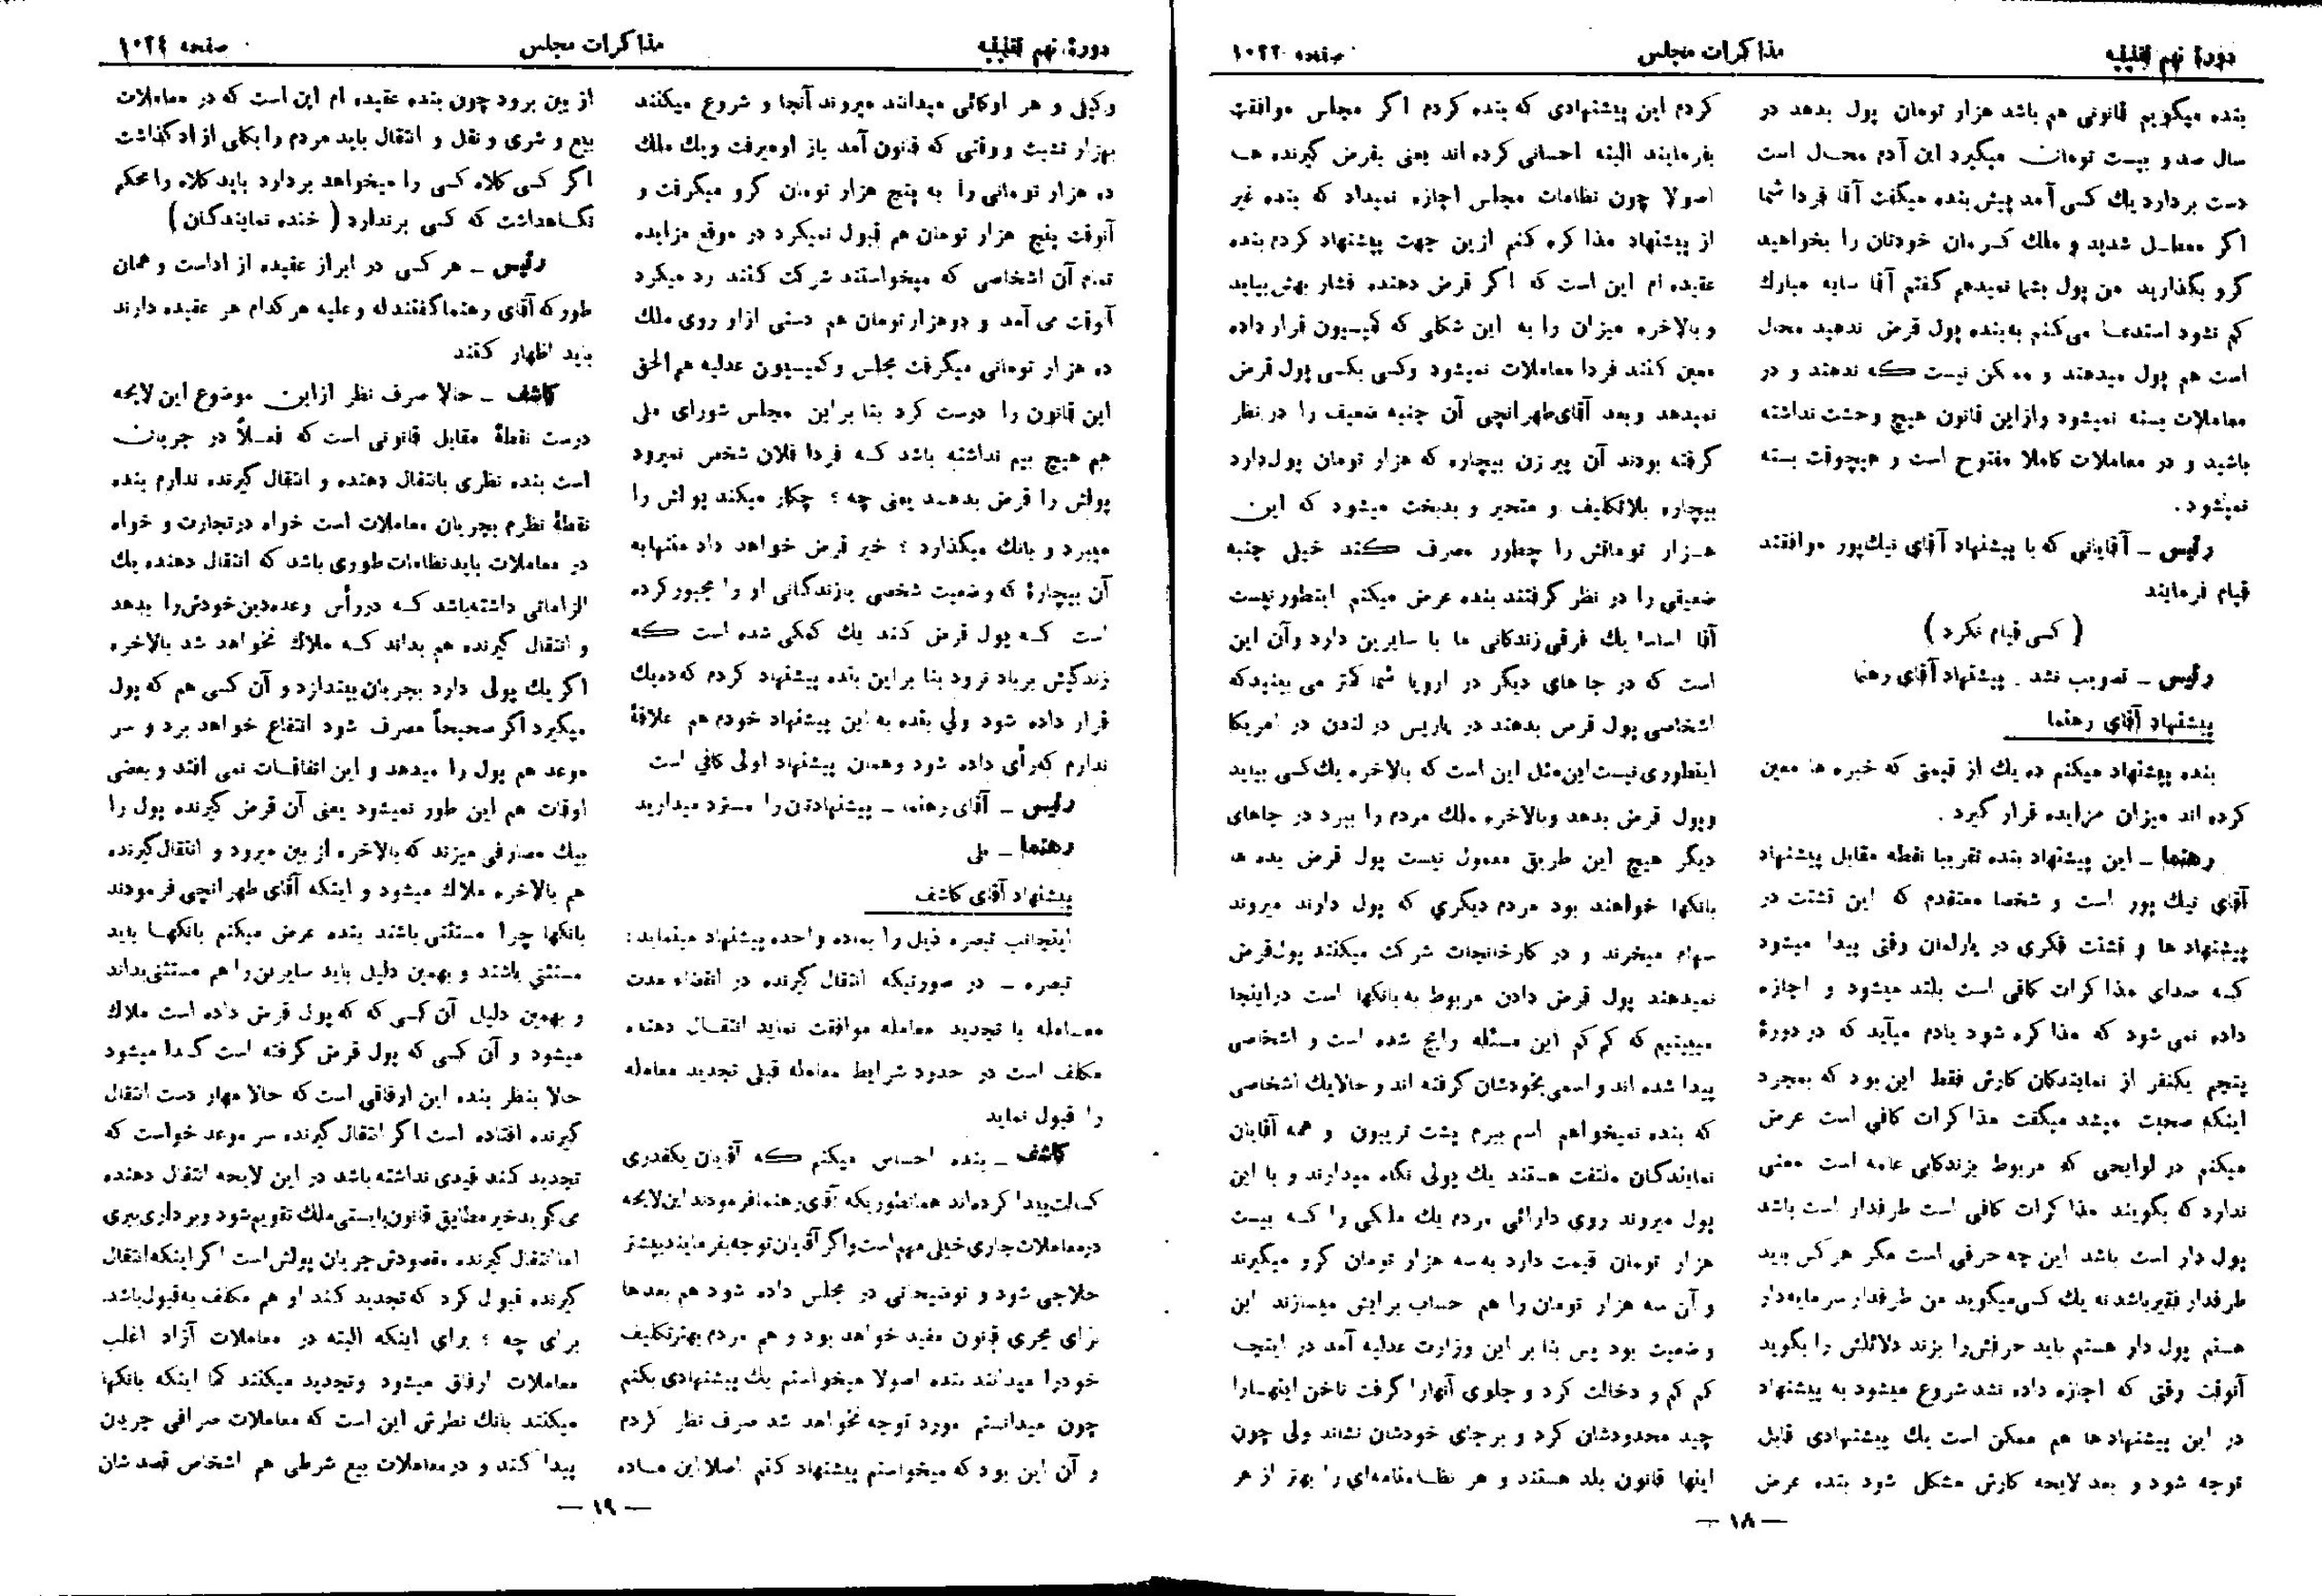 دورۀ نهم تقنینیه
مذاکرات مجلس
صفحه ۱۰۲۳
بنده میگویم قانونی هم باشد هزار تومان پول بدهد در
سال صد و بیست تومان میگیرد این آدم محال است
دست بردارد یك کسی آمد پیش بنده میگفت آقا فردا شما
اگر معطل شدید و ملك کرمان خودتان را بخواهید
گرو بگذارید من پول بشما نمیدهم گفتم آقا سایه مبارك
کم نشود استدعا می‌کنم به بنده پول قرض ندهید محال
است هم پول میدهند و ممکن نیست که ندهند و در
معاملات بسته نمیشود و از این قانون هیچ وحشت نداشته
باشید و در معاملات کاملا مفتوح است و هیچوقت بسته
نمیشود.
رئیس ـ آقایانی که با پیشنهاد آقای نیك‌پور موافقند
قیام فرمایند
( کسی قیام نکرد )
رئیس ـ تصویب نشد . پیشنهاد آقای رهنما
پیشنهاد آقای رهنما
بنده پیشنهاد میکنم ده یك از قیمتی که خبره ها معین
کرده اند میزان مزایده قرار گیرد .
رهنما ـ این پیشنهاد بنده تقریبا نقطه مقابل پیشنهاد
آقای نیك پور است و شخصا معتقدم که این تشتت در
پیشنهاد ها و تشتت فکری در پارلمان وقتی پیدا میشود
که صدای مذاکرات کافی است بلند میشود و اجازه
داده نمی شود که مذاکره شود یادم میآید که در دورۀ
پنجم یکنفر از نمایندگان کارش فقط این بود که بمجرد
اینکه صحبت میشد میگفت مذاکرات کافی است عرض
میکنم در لوایحی که مربوط بزندگانی عامه است معنی
ندارد که بگویند مذاکرات کافی است طرفدار است باشد
پول دار است باشد این چه حرفی است مگر هر کس باید
طرفدار فقیر باشد نه یك کسی میگوید من طرفدار سرمایه‌دار
هستم پول دار هستم باید حرفش را بزند دلائلش را بگوید
آنوقت وقتی که اجازه داده نشد شروع میشود به پیشنهاد
در این پیشنهاد ها هم ممکن است یك پیشنهادی قابل
توجه شود و بعد لایحه کارش مشکل شود بنده عرض
کردم این پیشنهادی که بنده کردم اگر مجلس موافقت
بفرمایند البته احسانی کرده اند یعنی بقرض گیرنده ها
اصولا چون نظامات مجلس اجازه نمیداد که بنده غیر
از پیشنهاد مذاکره کنم ازین جهت پیشنهاد کردم بنده
عقیده ام این است که اگر قرض دهنده فشار بهش بیاید
و بالاخره میزان را به این شکلی که کمیسیون قرار داده
معین کنند فردا معاملات نمیشود وکسی بکسی پول قرض
نمیدهد و بعد آقای طهرانچی آن جنبه ضعیف را در نظر
گرفته بودند آن پیر زن بیچاره که هزار تومان پول دارد
بیچاره بلاتکلیف و متحیر و بدبخت میشود که این
هزار تومانش را چطور مصرف کند خیلی جنبه
ضعیفی را در نظر گرفتند بنده عرض میکنم اینطور نیست
آقا اساسا یك فرقی زندگانی ما با سایرین دارد وآن این
است که در جا های دیگر در اروپا شما کمتر می بینید که
اشخاصی پول قرض بدهند در پاریس در لندن در امریکا
اینطوری نیست این مثل این است که بالاخره یك کسی بیاید
وپول قرض بدهد وبالاخره ملك مردم را ببرد در جاهای
دیگر هیچ این طریق معمول نیست پول قرض بده ها
بانکها خواهند بود مردم دیگری که پول دارند میروند
سهام میخرند و در کارخانجات شرکت میکنند پول قرض
نمیدهند پول قرض دادن مربوط به بانکها است در اینجا
میبینیم که کم کم این مسئله رایج شده است و اشخاصی
پیدا شده اند و اسمی بخودشان گرفته اند و حالا یك اشخاصی
که بنده نمیخواهم اسم ببرم پشت تریبون و همه آقایان
نمایندگان ملتفت هستند یك پولی نگاه میدارند و با این
پول میروند روی دارائی مردم یك ملکی را که بیست
هزار تومان قیمت دارد به سه هزار تومان گرو میگیرند
و آن سه هزار تومان را هم حساب برایش میسازند این
وضعیت بود پس بنا بر این وزارت عدلیه آمد در اینجا
کم کم و دخالت کرد و جلوی آنهارا گرفت ناخن اینهارا
چید محدودشان کرد و بر جای خودشان نشاند ولی چون
اینها قانون بلد هستند و هر نظامنامه‌ای را بهتر از هر
— ۱۸ —
دورۀ نهم تقنینیه
مذاکرات مجلس
صفحه ۱۰۲٤
وکیلی و هر اوکاتی میدانند میروند آنجا و شروع میکنند
بهزار تشبث و وقتی که قانون آمد باز او میرفت و یك ملك
ده هزار تومانی را به پنج هزار تومان گرو میگرفت و
آنوقت پنج هزار تومان هم قبول نمیکرد در موقع مزایده
تمام آن اشخاصی که میخواستند شرکت کنند رد میکرد
آنوقت می آمد و دو هزار تومان هم دستی ازاو روی ملك
ده هزار تومانی میگرفت مجلس و کمیسیون عدلیه هم الحق
این قانون را درست کرد بنا بر این مجلس شورای ملی
هم هیچ بیم نداشته باشد که فردا فلان شخص نمیرود
پولش را قرض بدهد یعنی چه ؟ چکار میکند پولش را
میبرد و بانك میگذارد ؟ خیر قرض خواهد داد منتها به
آن بیچارۀ که وضعیت شخصی یا زندگانی او را مجبور کرده
است که پول قرض کند یك کمکی شده است که
زندگیش بر باد نرود بنا بر این بنده پیشنهاد کردم که ده یك
قرار داده شود ولی بنده به این پیشنهاد خودم هم علاقۀ
ندارم که رأی داده شود وهمان پیشنهاد اولی کافی است
رئیس ـ آقای رهنما ـ پیشنهادتان را مسترد میدارید
رهنما ـ بلی
پیشنهاد آقای کاشف
اینجانب تبصره ذیل را بماده واحده پیشنهاد مینماید :
تبصره ـ در صورتیکه انتقال گیرنده در انقضاء مدت
معامله با تجدید معامله موافقت نماید انتقال دهنده
مکلف است در حدود شرایط معامله قبلی تجدید معامله
را قبول نماید
کاشف ـ بنده احساس میکنم که آقایان یکقدری
کسالت پیدا کرده‌اند همانطوریکه آقای رهنما فرمودند این لایحه
در معاملات جاری خیلی مهم است و اگر آقایان توجه بفرمایند بیشتر
حلاجی شود و توضیحاتی در مجلس داده شود هم بعدها
برای مجری قانون مفید خواهد بود و هم مردم بهتر تکلیف
خودرا میدانند بنده اصولا میخواستم یك پیشنهادی بکنم
چون میدانستم مورد توجه نخواهد شد صرف نظر کردم
و آن این بود که میخواستم پیشنهاد کنم اصلا این ماده
از بین برود چون بنده عقیده ام این است که در معاملات
بیع و شری و نقل و انتقال باید مردم را بکلی ازاد گذاشت
اگر کسی کلاه کسی را میخواهد بردارد باید کلاه را محکم
نگاهداشت که کسی برندارد ( خنده نمایندگان )
رئیس ـ هر کسی در ابراز عقیده ازاد است و همان
طور که آقای رهنما گفتند له و علیه هر کدام هر عقیده دارند
باید اظهار کنند
کاشف ـ حالا صرف نظر ازاین موضوع این لایحه
درست نقطۀ مقابل قانونی است که فعلاً در جریان
است بنده نظری بانتقال دهنده و انتقال گیرنده ندارم بنده
نقطۀ نظرم بجریان معاملات است خواه در تجارت و خواه
در معاملات باید نظامات طوری باشد که انتقال دهنده یك
الزاماتی داشته باشد که در رأس وعده دین خودش را بدهد
و انتقال گیرنده هم بداند که ملاك نخواهد شد بالاخره
اگر یك پولی دارد بجریان بیندازد و آن کسی هم که پول
میگیرد اگر صحیحاً مصرف شود انتفاع خواهد برد و سر
موعد هم پول را میدهد و این اتفاقات نمی افتد و بعضی
اوقات هم این طور نمیشود یعنی آن قرض گیرنده پول را
بیك مصارفی میزند که بالاخره از بین میرود و انتقال گیرنده
هم بالاخره ملاك میشود و اینکه آقای طهرانچی فرمودند
بانکها چرا مستثنی باشند بنده عرض میکنم بانکها باید
مستثنی باشند و بهمین دلیل باید سایرین را هم مستثنی بداند
و بهمین دلیل آن کسی که که پول قرض داده است ملاك
میشود و آن کسی که پول قرض گرفته است گدا میشود
حالا بنظر بنده این ارفاقی است که حالا مهار دست انتقال
گیرنده افتاده است اگر انتقال گیرنده سر موعد خواست که
تجدید کند قیدی نداشته باشد در این لایحه انتقال دهنده
می گوید خیر مطابق قانون بایستی ملك تقویم شود و برداری ببری
اما انتقال گیرنده مقصودش جریان پولش است اگر اینکه انتقال
گیرنده قبول کرد که تجدید کند او هم مکلف به قبول باشد.
برای چه ؟ برای اینکه البته در معاملات آزاد اغلب
معاملات ارفاق میشود وتجدید میکنند کما اینکه بانکها
میکنند بانك نظرش این است که معاملات صرافی جریان
پیدا کند و در معاملات بیع شرطی هم اشخاص قصدشان
— ۱۹ —